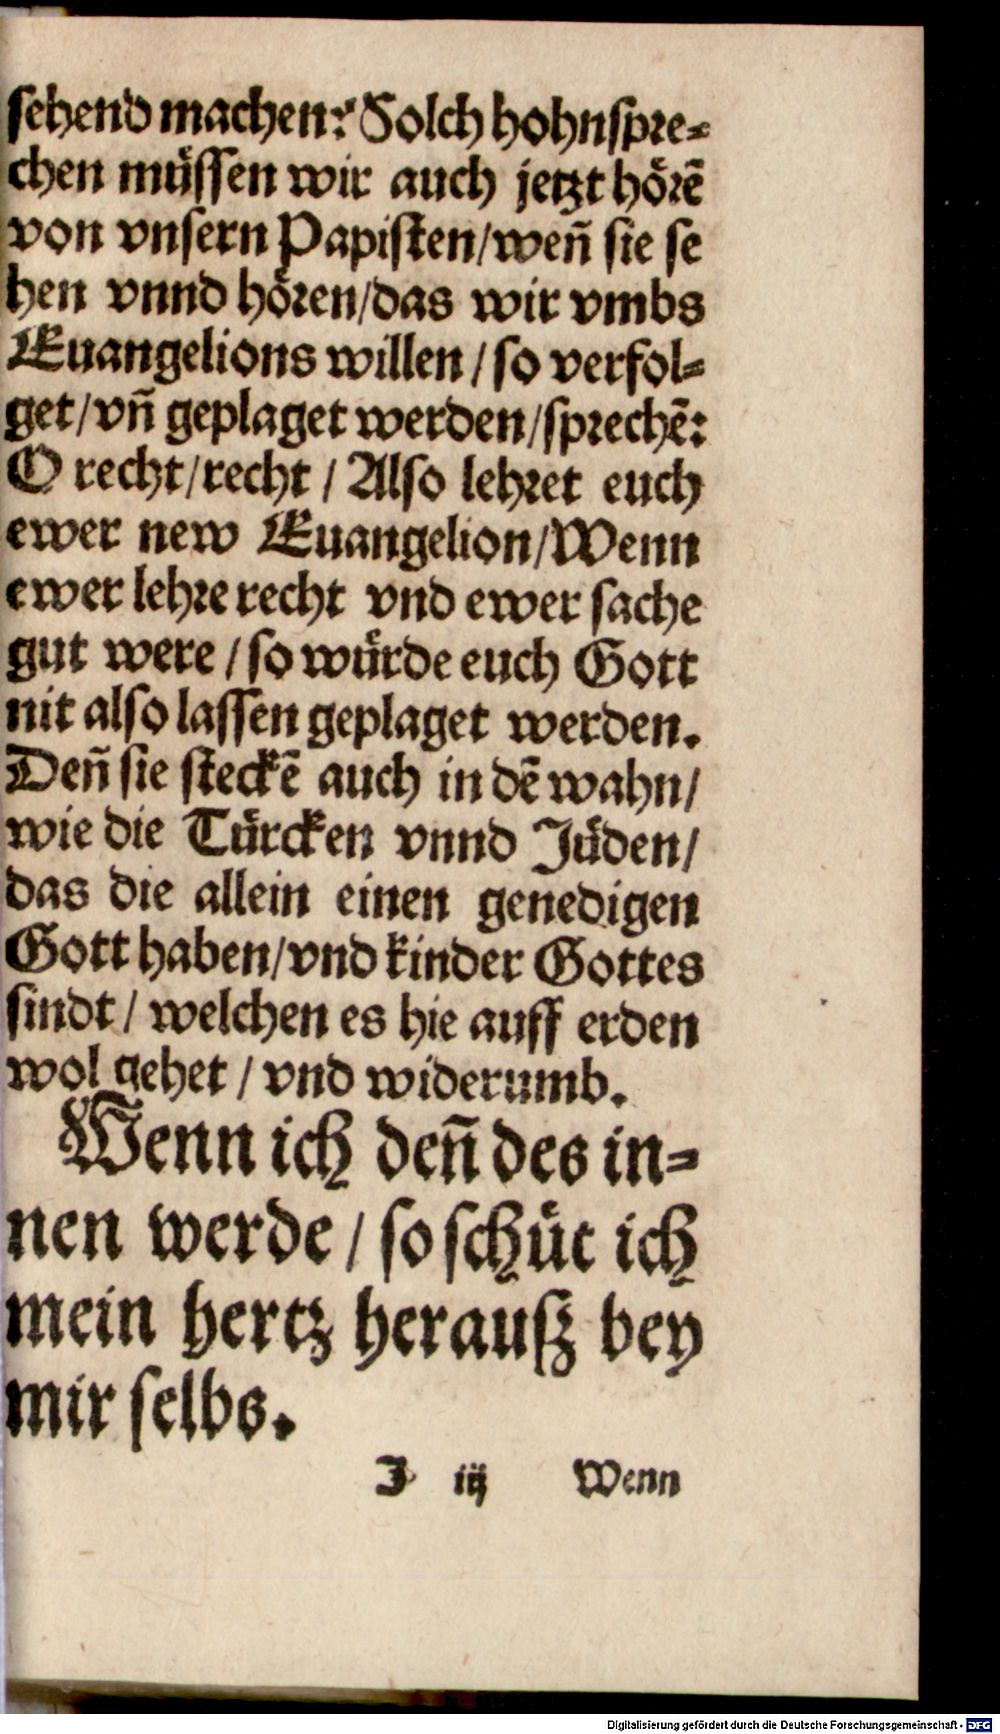 sehend machen? Solch hohnspre⸗
chen müssen wir auch jetzt hörē
von vnsern Papisten/weñ sie se
hen vnnd hören/das wir vmbs
Euangelions willen / so verfol⸗
get/vñ geplaget werden/sprechē:
O recht/recht / Also lehret euch
ewer new Euangelion/Wenn
ewer lehre recht vnd ewer sache
gut were / so würde euch Gott
nit also lassen geplaget werden.
Deñ sie steckē auch in dē wahn/
wie die Türcken vnnd Jüden/
das die allein einen genedigen
Gott haben/vnd kinder Gottes
sindt / welchen es hie auff erden
wol gehet / vnd widerumb.
Wenn ich deñ des in⸗
nen werde / so schüt ich
mein hertz herauß bey
mir selbs.
J iij Wenn
Digitalisierung gefördert durch die Deutsche Forschungsgemeinschaft - DFG